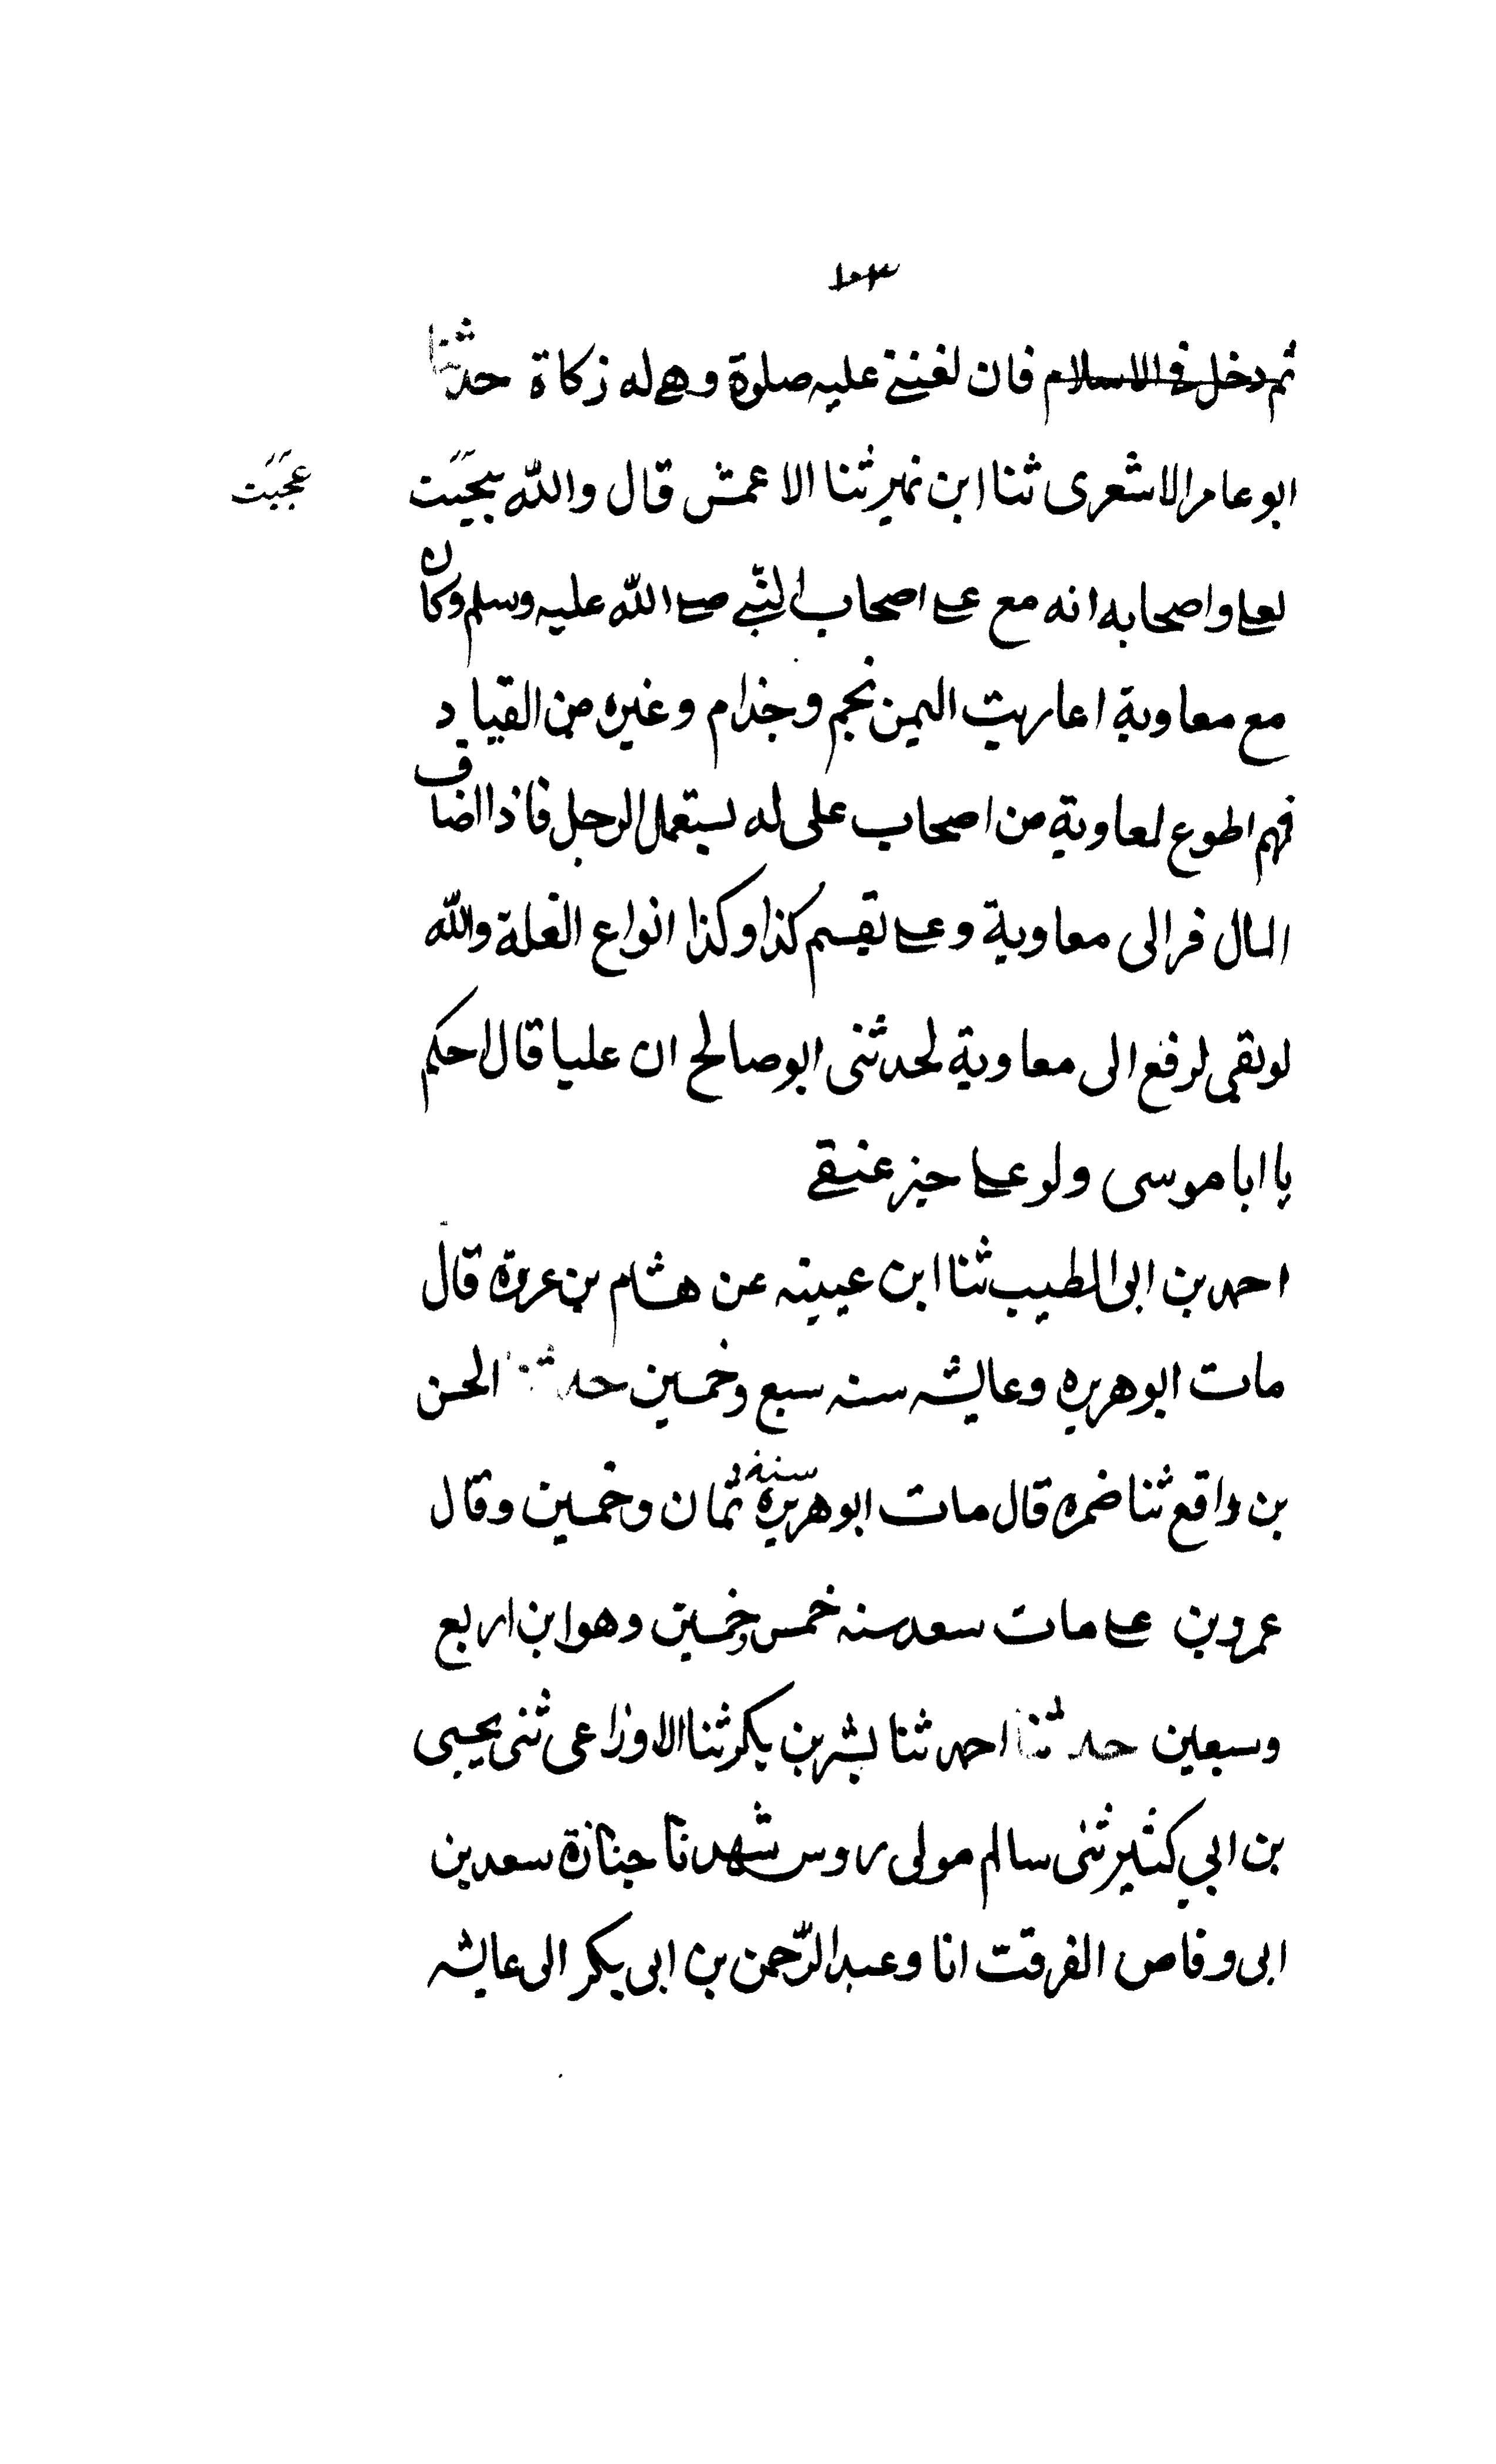 ١٠٣
ثم دخل في الاسلام فان لغننى عليه صلوة وهى له زكاة حدثنا
ابو عامر الاشعرى ثنا ابن نمير ثنا الاعمش قال والله يجيبت
عجيبت
لعلى واصحابه انه مع على اصحاب النبى صلى الله عليه وسلم وكان
مع معاوية اعاريب اليمن نجم وجذام وغيره من القياد
فهم اطوع لمعاوية من اصحاب على له يستعمل الرجل فاذا اضاف
المال فر الى معاوية وعلى يقسم كذا وكذا انواع الغلة والله
لو بقى لرفع الى معاوية لحدثنى ابو صالح ان عليا قال احكم
يا ابا موسى ولو على حيز عنقى
احمد بن ابى الطيب ثنا ابن عيينه عن هشام بن عروة قال
مات ابو هريره وعايشه سنه سبع وخمسين حدثنا الحسن
بن واقع ثنا ضمره قال مات ابو هريره سنة ثمان وخمسين وقال
عمرو بن على مات سعد سنه خمس وخمسين وهو ابن اربع
وسبعين حدثنا احمد ثنا بشر بن بكر ثنا الاوزاعى ثنى يحيى
بن ابي كثير ثنى سالم مولى روس شهدنا جنازة سعد بن
ابى وقاص الفرقت انا وعبد الرّحمن بن ابى بكر الى عايشه